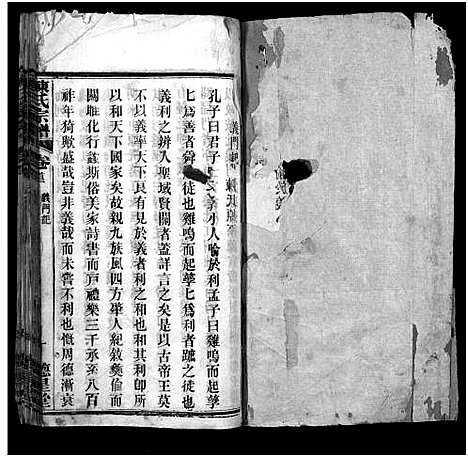 義門記
孔子曰君子喻於義小人喻於利孟子曰雞鳴而起孳
孳為善者舜之徒也雞鳴而起孳孳為利者蹠之徒也
義利之辨入聖域賢關者蓋詳言之矣是以古帝王莫
不以義率大下良有見於義者利之和也和其利卽所
以和天下國家矣故親九族風四方華人紀敘彝倫而
關雎化行蓋斯俗美家詩書而戸禮樂三千承至八百
祥年猗歟盛哉豈非義哉而未嘗不利也慨周德漸衰
陳氏宗譜 卷首 義門記 一 德星堂